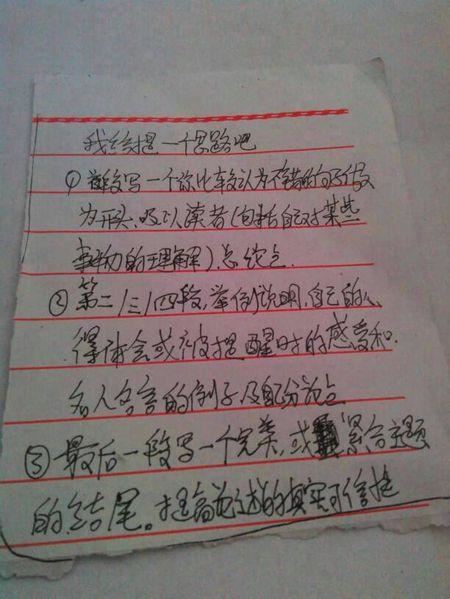 我给提一个思路吧
①首段写一个你比较认为不错的句及段
为开头，吸引读者(包括自己对某些
事物的理解)总论点
②第二/三/四段，举例说明，自己的心
得体会或被提醒时的感受和
名人名言的例子，及分论点
③最后一段写一个完美，或紧合主题
的结尾。提高论述的真实可信性